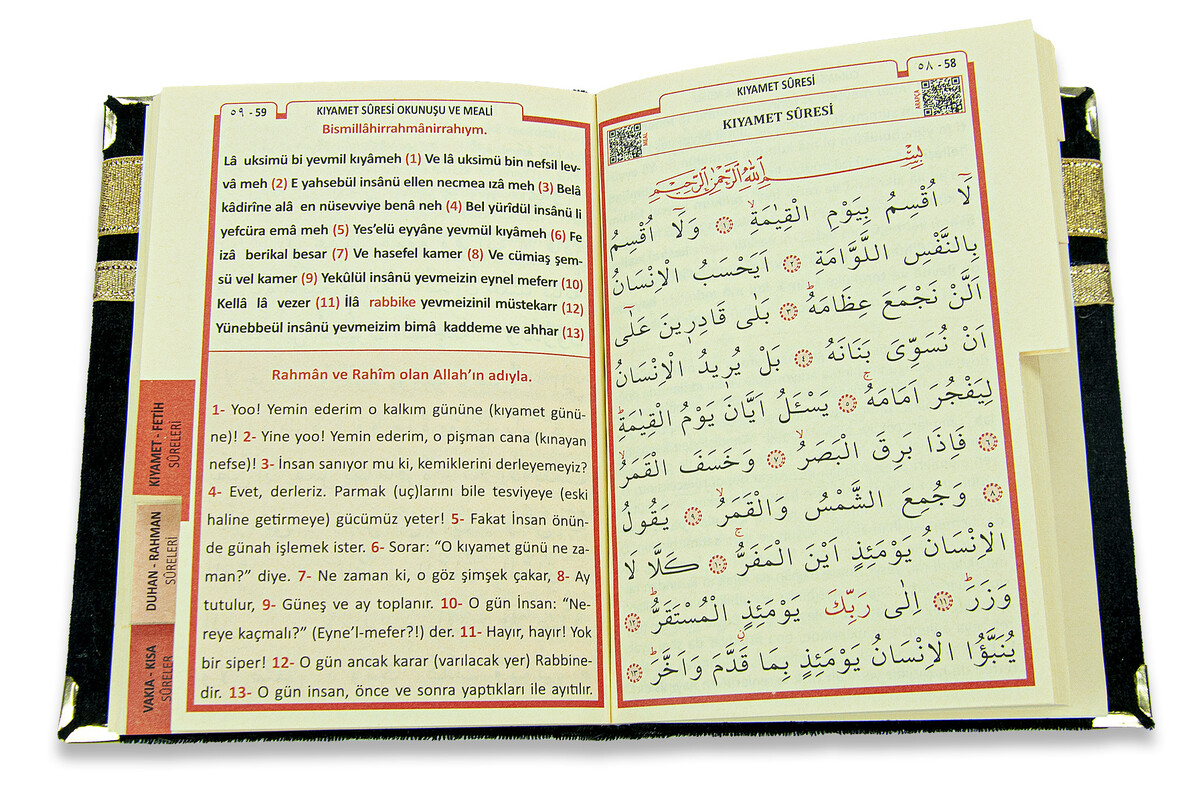 ٥٩ - 59
KIYAMET SÛRESİ OKUNUŞU VE MEALİ
Bismillâhirrahmânirrahıym.
Lâ uksimü bi yevmil kıyâmeh (1) Ve lâ uksimü bin nefsil lev-
vâ meh (2) E yahsebül insânü ellen necmea ızâ meh (3) Belâ
kâdirîne alâ en nüsevviye benâ neh (4) Bel yürîdül insânü li
yefcüra emâ meh (5) Yes'elü eyyâne yevmül kıyâmeh (6) Fe
izâ berikal besar (7) Ve hasefel kamer (8) Ve cümiaş şem-
sü vel kamer (9) Yekûlül insânü yevmeizin eynel meferr (10)
Kellâ lâ vezer (11) İlâ rabbike yevmeizinil müstekarr (12)
Yünebbeül insânü yevmeizim bimâ kaddeme ve ahhar (13)
Rahmân ve Rahîm olan Allah'ın adıyla.
1- Yoo! Yemin ederim o kalkım gününe (kıyamet günü-
ne)! 2- Yine yoo! Yemin ederim, o pişman cana (kınayan
nefse)! 3- İnsan sanıyor mu ki, kemiklerini derleyemeyiz?
4- Evet, derleriz. Parmak (uç)larını bile tesviyeye (eski
haline getirmeye) gücümüz yeter! 5- Fakat İnsan önün-
de günah işlemek ister. 6- Sorar: "O kıyamet günü ne za-
man?" diye. 7- Ne zaman ki, o göz şimşek çakar, 8- Ay
tutulur, 9- Güneş ve ay toplanır. 10- O gün İnsan: "Ne-
reye kaçmalı?" (Eyne'l-mefer?!) der. 11- Hayır, hayır! Yok
bir siper! 12- O gün ancak karar (varılacak yer) Rabbine-
dir. 13- O gün insan, önce ve sonra yaptıkları ile ayıtlır.
KIYAMET - FETİH
SÛRELERİ
DUHAN - RAHMAN
SÛRELERİ
VAKIA - KISA
SÛRELER
٥٨ - 58
KIYAMET SÛRESİ
KIYAMET SÛRESİ
MEAL
ARAPÇA
بِسْمِ اللّٰهِ الرَّحْمٰنِ الرَّحِيمِ
لَٓا اُقْسِمُ بِيَوْمِ الْقِيٰمَةِۙ ﴿١﴾ وَلَٓا اُقْسِمُ
بِالنَّفْسِ اللَّوَّامَةِ ﴿٢﴾ اَيَحْسَبُ الْاِنْسَانُ
اَلَّنْ نَجْمَعَ عِظَامَهُۜ ﴿٣﴾ بَلٰى قَادِر۪ينَ عَلٰٓى
اَنْ نُسَوِّيَ بَنَانَهُ ﴿٤﴾ بَلْ يُر۪يدُ الْاِنْسَانُ
لِيَفْجُرَ اَمَامَهُۚ ﴿٥﴾ يَسْـَٔلُ اَيَّانَ يَوْمُ الْقِيٰمَةِۜ
﴿٦﴾ فَاِذَا بَرِقَ الْبَصَرُۙ ﴿٧﴾ وَخَسَفَ الْقَمَرُۙ
﴿٨﴾ وَجُمِعَ الشَّمْسُ وَالْقَمَرُۙ ﴿٩﴾ يَقُولُ
الْاِنْسَانُ يَوْمَئِذٍ اَيْنَ الْمَفَرُّۚ ﴿١٠﴾ كَلَّا لَا
وَزَرَۜ ﴿١١﴾ اِلٰى رَبِّكَ يَوْمَئِذٍ الْمُسْتَقَرُّۜ ﴿١٢﴾
يُنَبَّؤُا الْاِنْسَانُ يَوْمَئِذٍ بِمَا قَدَّمَ وَاَخَّرَۜ ﴿١٣﴾